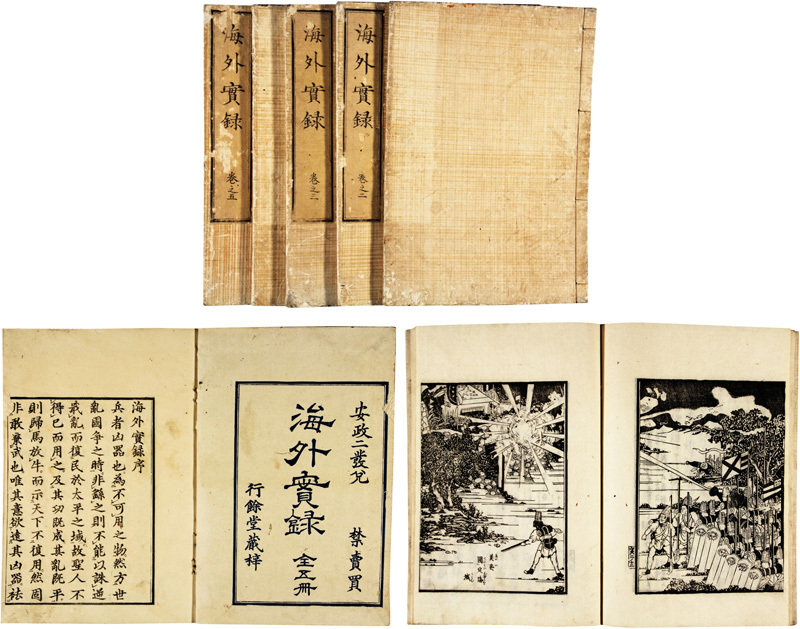 海外實録 卷之二
海外實録 卷之三
海外實録 卷之五
安政二發兌 禁賣買
海外實録 全五冊
行餘堂藏梓
海外實録序
兵者凶器也為不可用之物然方世
亂國争之時非繇之則不能以誅逆
戡亂而復民於太平之域故聖人不
得已而用之及其功既成其亂既平
則歸馬放牛而示天下不復用然固
非敢棄武也唯其意欲遠其凶器祛